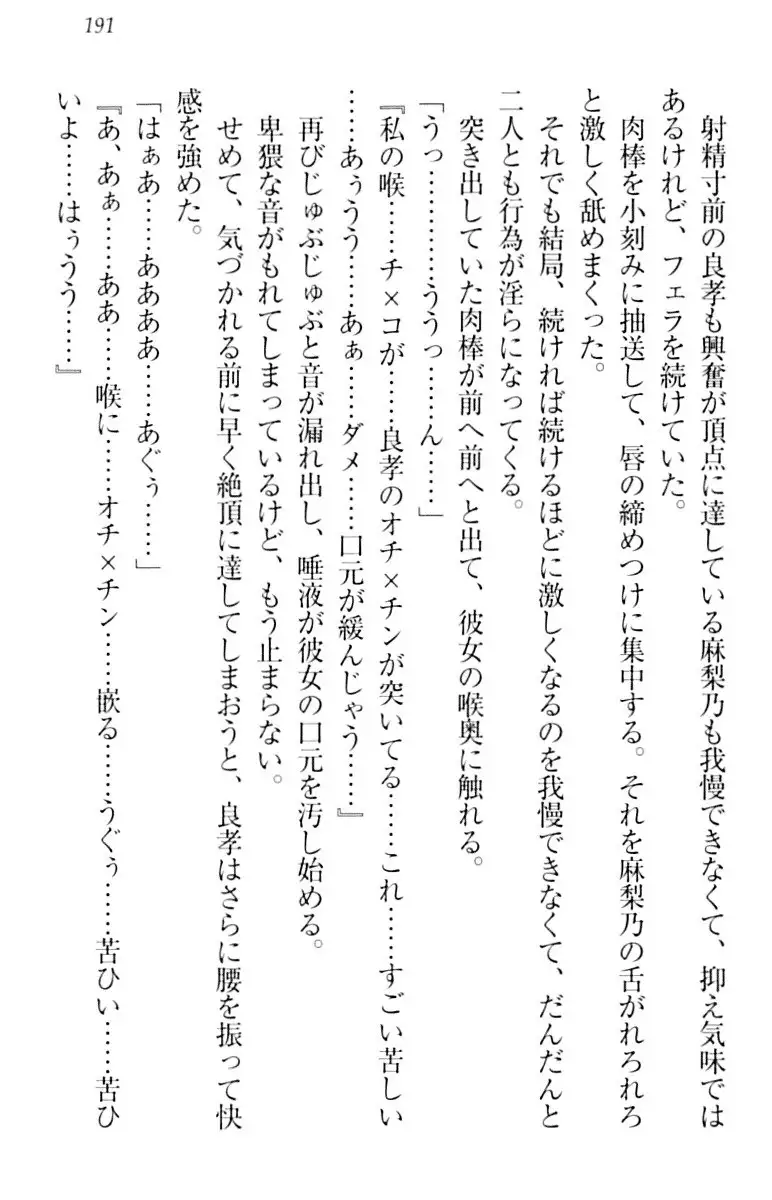 191
射精寸前の良孝も興奮が頂点に達している麻梨乃も我慢できなくて、抑え気味では
あるけれど、フェラを続けていた。
肉棒を小刻みに抽送して、唇の締めつけに集中する。それを麻梨乃の舌がれろれろ
と激しく舐めまくった。
それでも結局、続ければ続けるほどに激しくなるのを我慢できなくて、だんだんと
二人とも行為が淫らになってくる。
突き出していた肉棒が前へ前へと出て、彼女の喉奥に触れる。
「うっ…………ううっ……ん……」
『私の喉……チ×コが……良孝のオチ×チンが突いてる……これ……すごい苦しい
……あぅうう……あぁ……ダメ……口元が緩んじゃう……』
再びじゅぶじゅぶと音が漏れ出し、唾液が彼女の口元を汚し始める。
卑猥な音がもれてしまっているけど、もう止まらない。
せめて、気づかれる前に早く絶頂に達してしまおうと、良孝はさらに腰を振って快
感を強めた。
「はぁあ……ああああ……あぐぅ……」
『あ、あぁ……ああ……喉に……オチ×チン……嵌る……うぐぅ……苦ひい……苦ひ
いよ……はぅうう……』